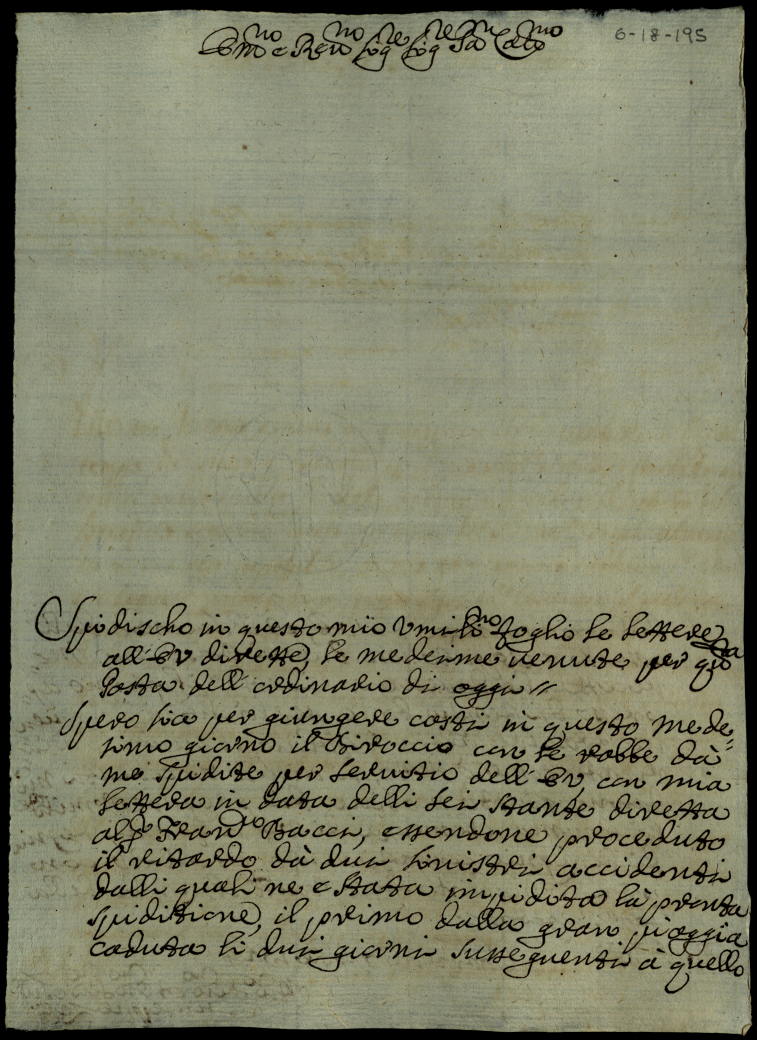 Em.mo e Rev.mo Sig.re Sig.re Pad.n Col.mo
6-18-195
Spidischo in questo mio umiliss.mo foglio le lettere
all' E.V. dirette, le medesime venute per q.sta
Posta dell' ordinario di oggi //
Spero sia per giungere costi in questo mede=
simo giorno il Biroccio con le robbe dà
me spidite per servitio dell' E.V. con mia
lettera in data delli sei stante diretta
al S.r Fran.co Bacci, essendone proceduto
il ritardo dà dui sinistri accidenti
dalli quali ne e stata impidita là pronta
spiditione, il primo dalla gran pioggia
caduta li dui giorni susseguenti à quello